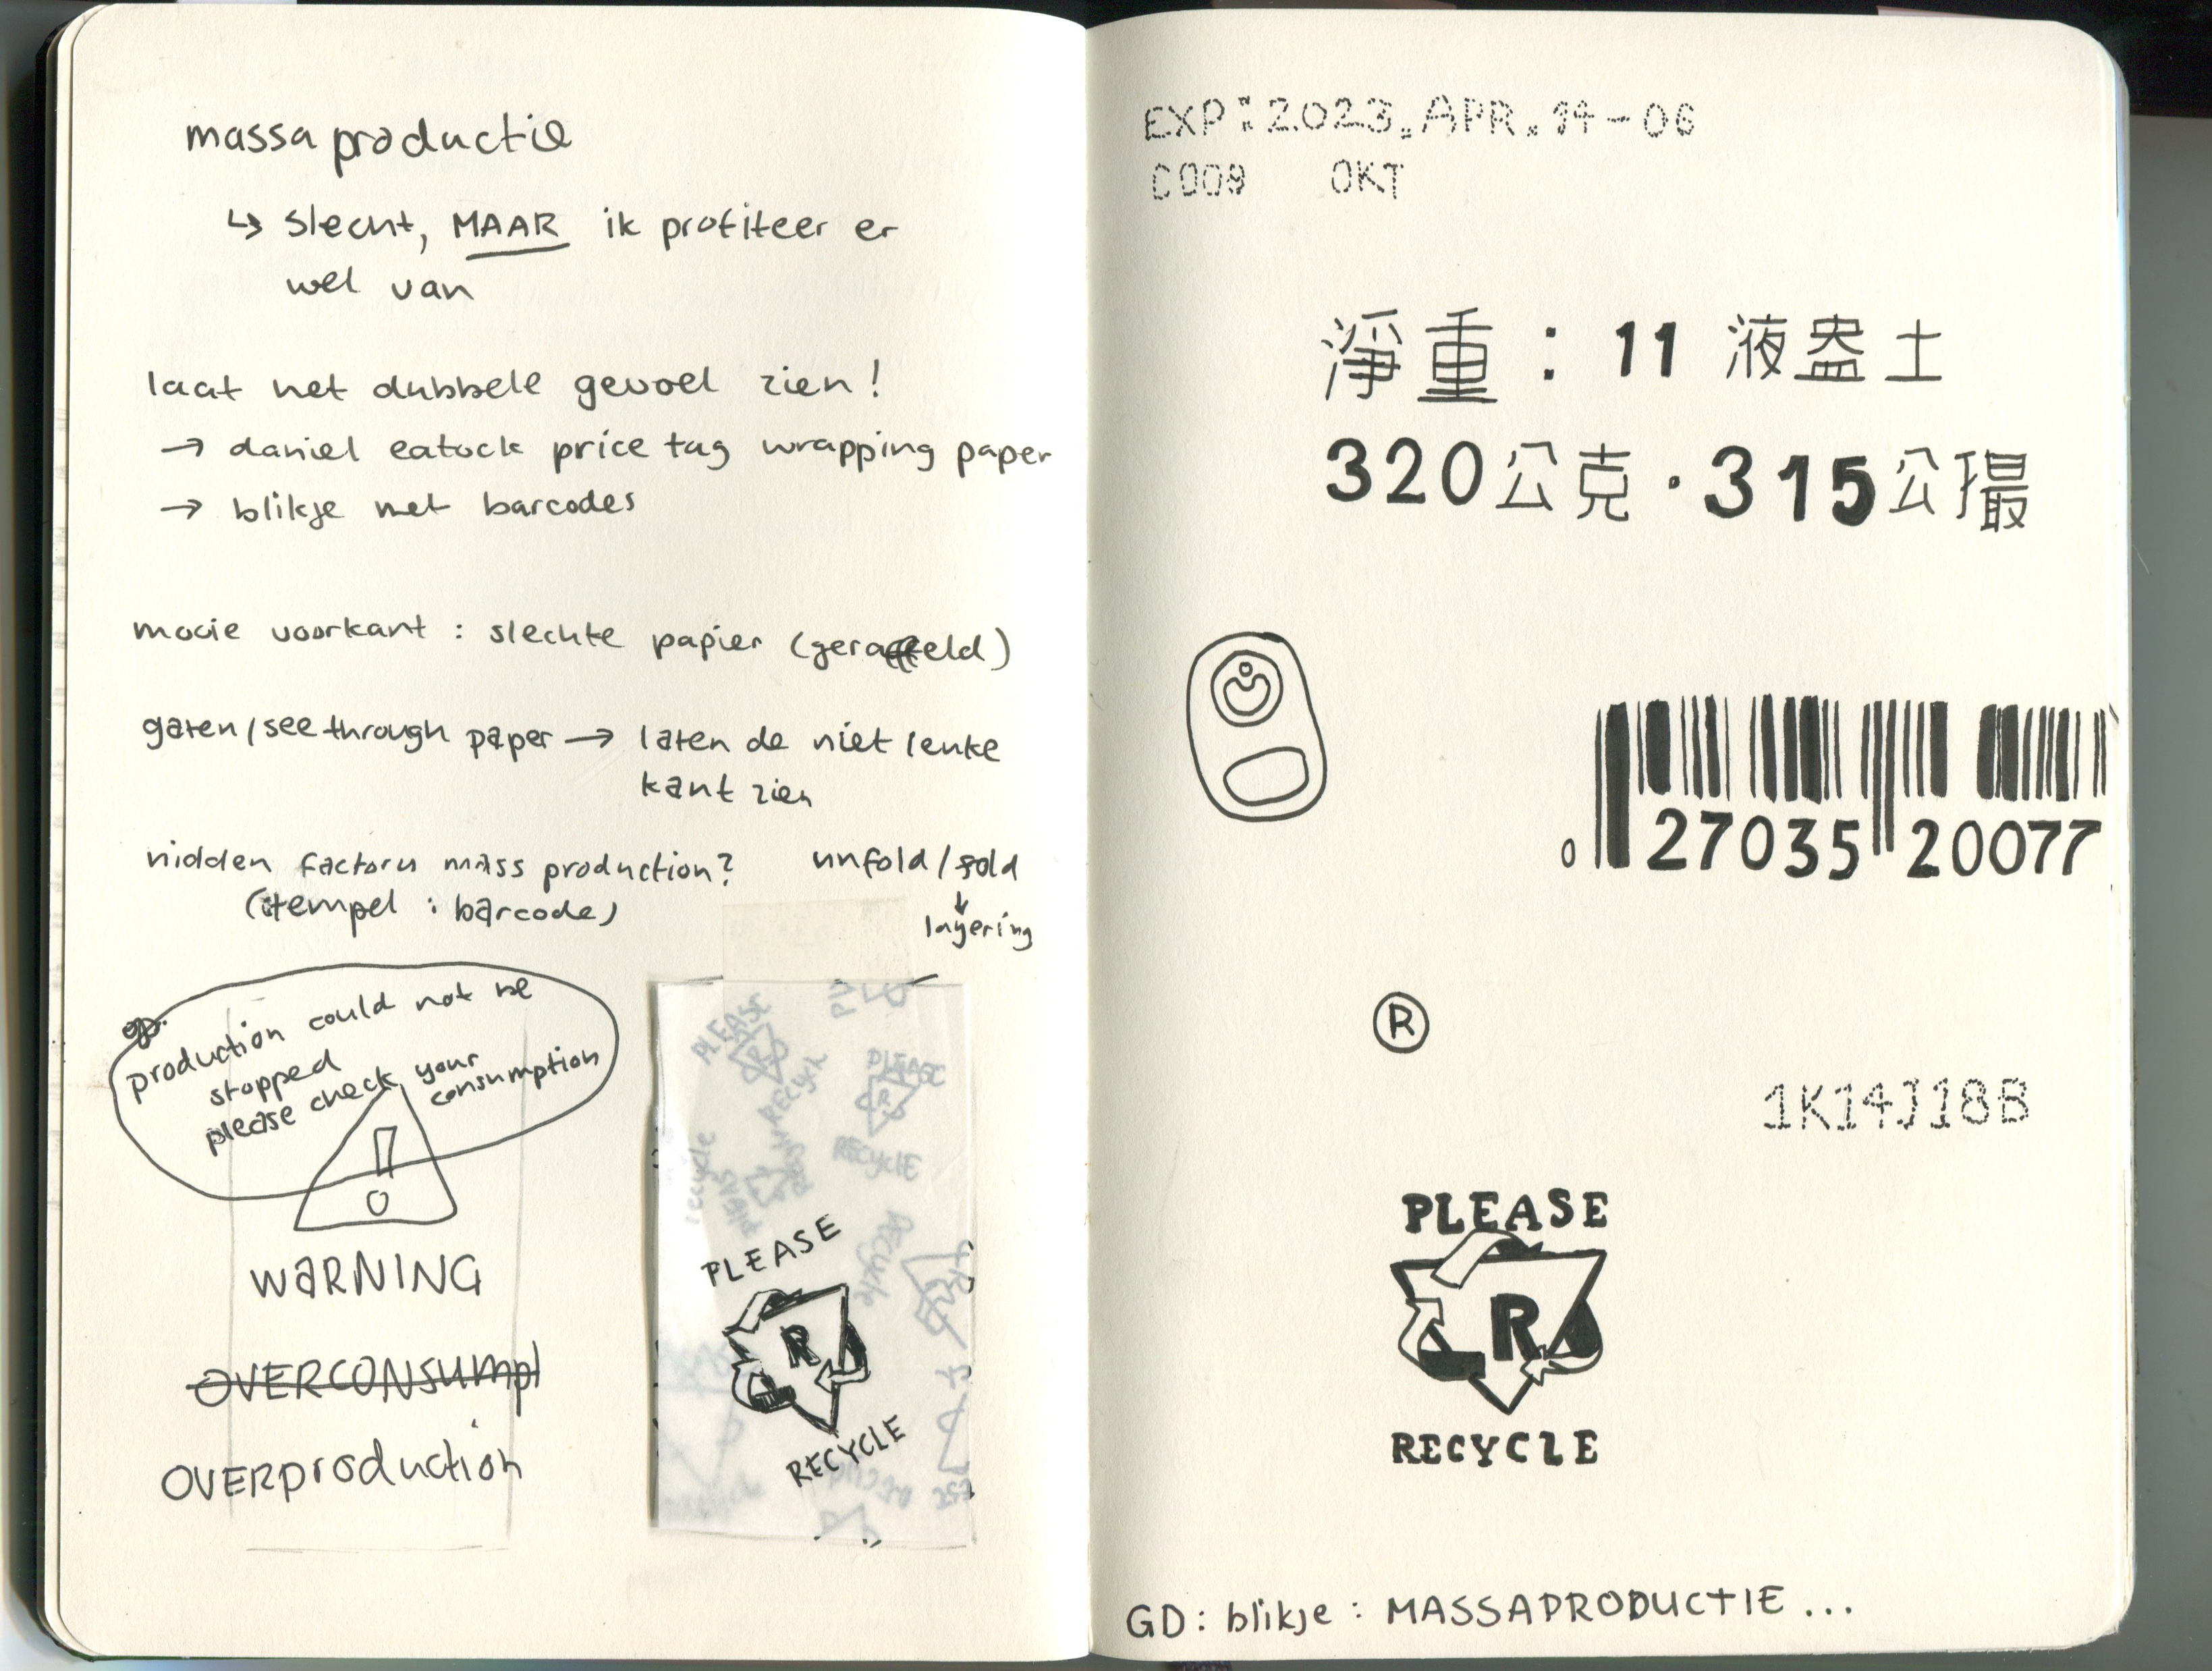 massaproductie
↳ slecht, MAAR ik profiteer er
wel van
laat het dubbele gevoel zien!
→ daniel eatock price tag wrapping paper
→ blikje met barcodes
mooie voorkant : slechte papier (geraffeld)
gaten/see through paper → laten de niet leuke
kant zien
hidden factory mass production?
(stempel : barcode)
unfold/fold
↓
layering
production could not be
stopped
please check your
consumption
!
WARNING
OVERCONSUMPT
OVERproduction
PLEASE
R
RECYCLE
PLEASE
R
RECYCLE
PLEASE
R
RECYCLE
recycle
please
RECYCLE
EXP:2023.APR.14-06
C009 OKT
淨重:11 液盎土
320公克·315公撮
0 27035 20077
®
1K14J18B
PLEASE
R
RECYCLE
GD: blikje: MASSAPRODUCTIE...